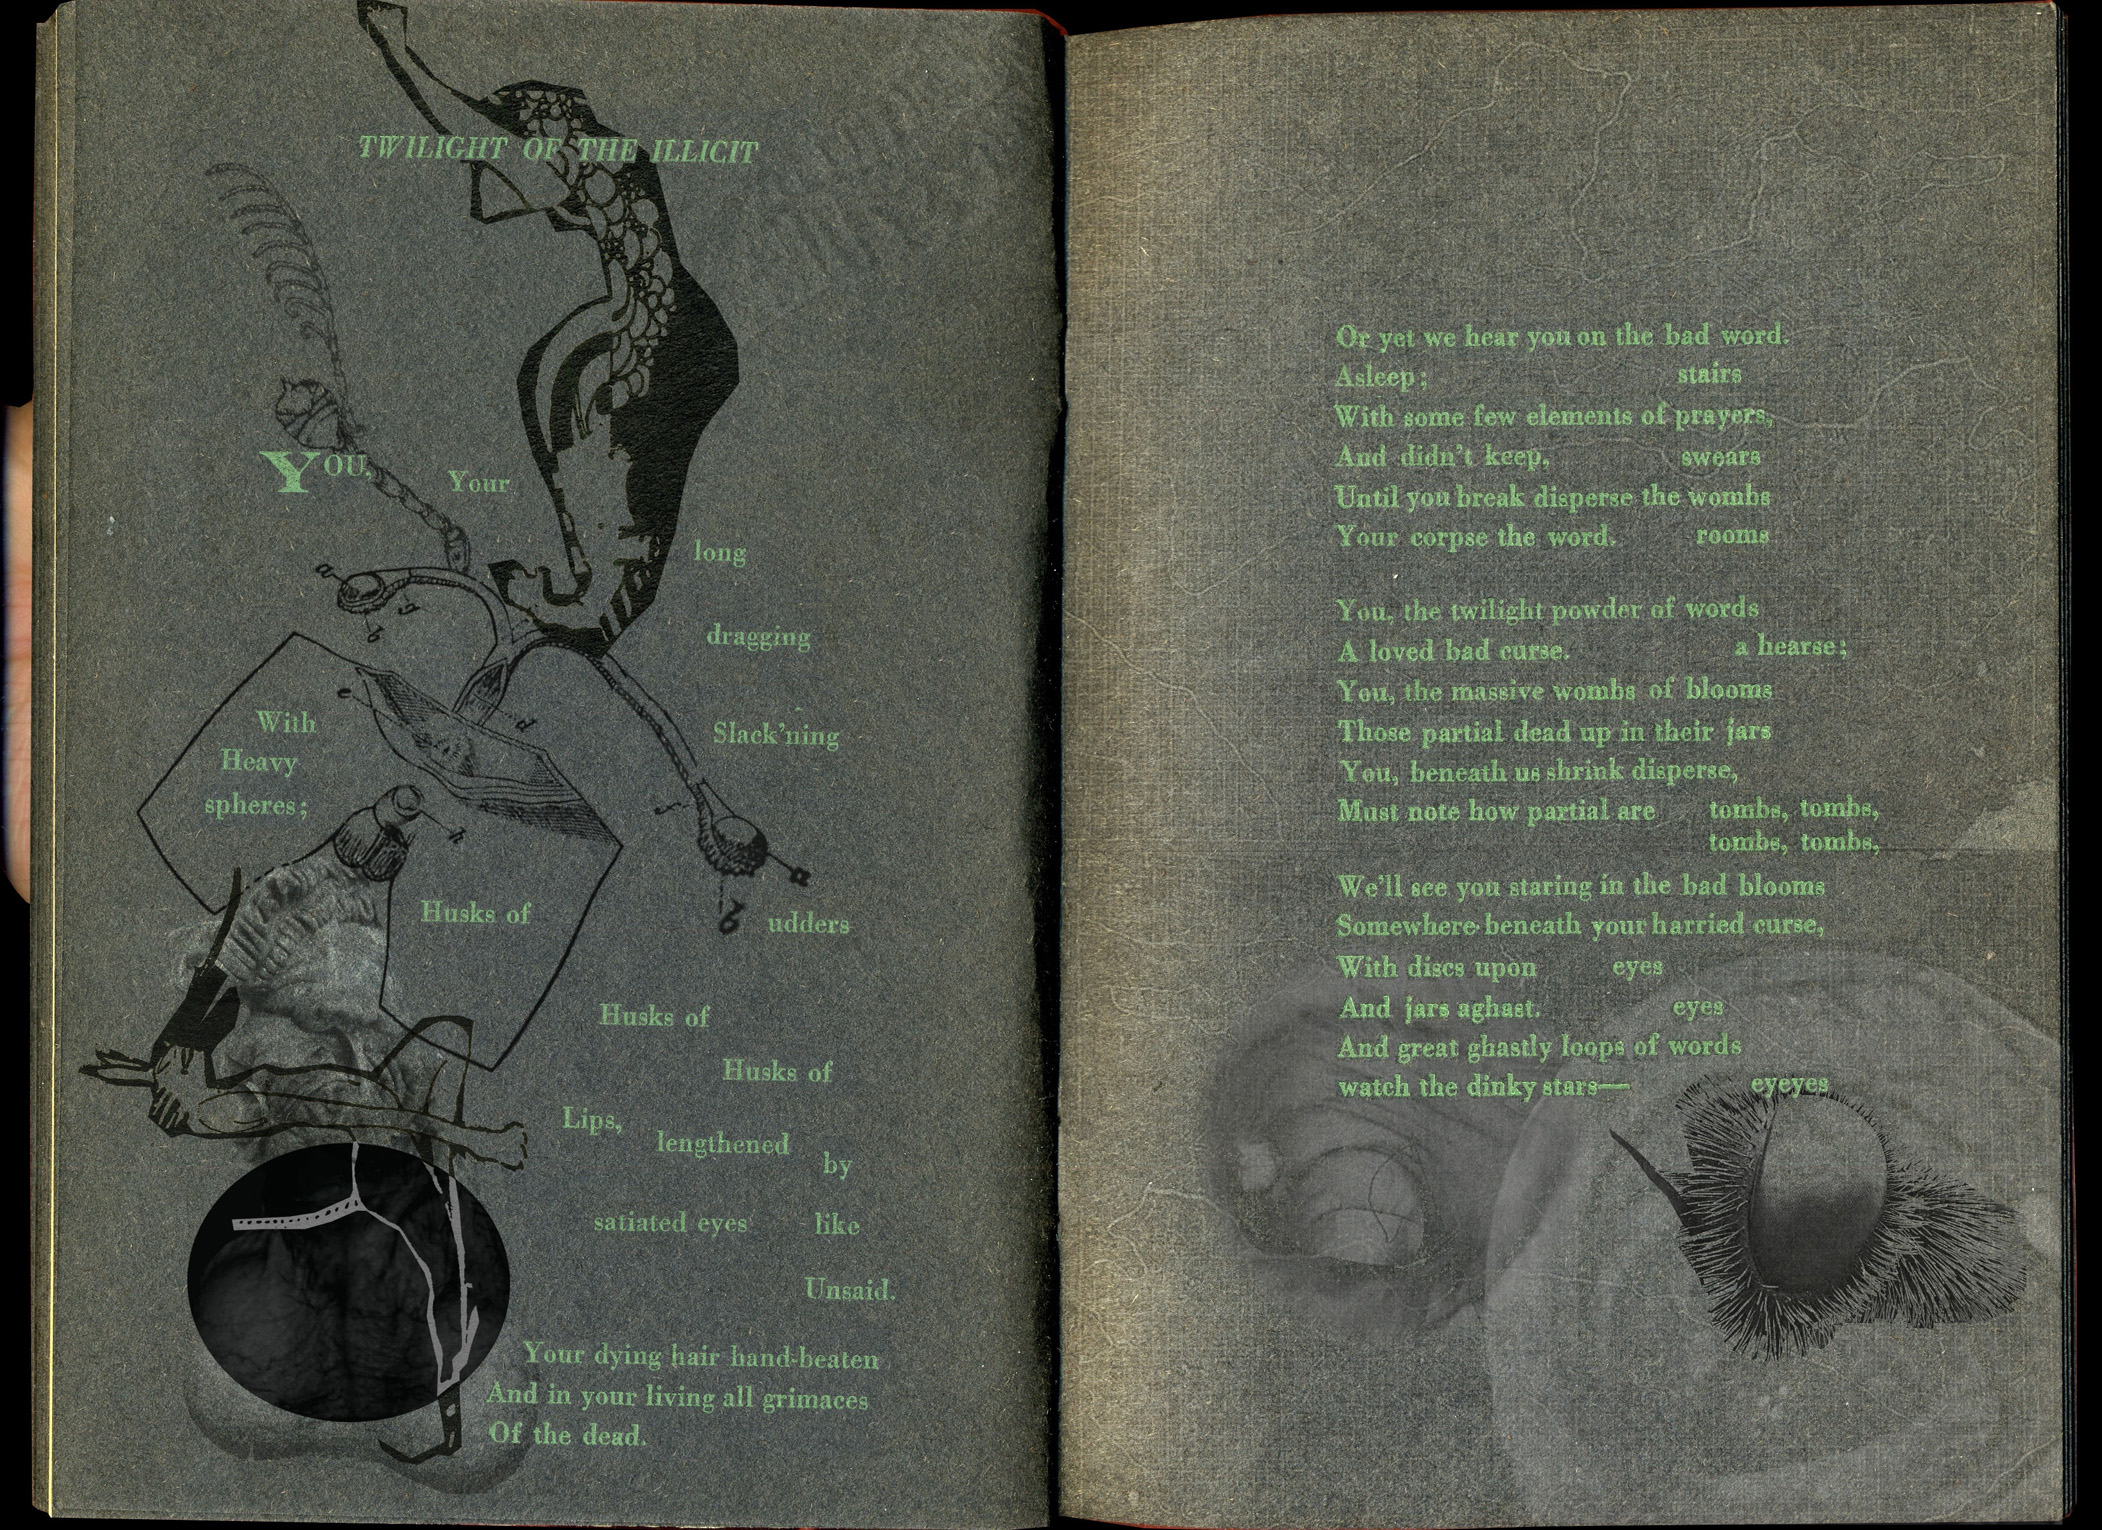 TWILIGHT OF THE ILLICIT
YOU, Your
long
dragging
Slack'ning
With
Heavy
spheres;
a
b
g
e
d
f
h
a
b udders
Husks of
Husks of
Husks of
Lips, lengthened by
satiated eyes like
Unsaid.
Your dying hair hand-beaten
And in your living all grimaces
Of the dead.
Or yet we hear you on the bad word.
Asleep; stairs
With some few elements of prayers,
And didn't keep, swears
Until you break disperse the wombs
Your corpse the word. rooms
You, the twilight powder of words
A loved bad curse. a hearse;
You, the massive wombs of blooms
Those partial dead up in their jars
You, beneath us shrink disperse,
Must note how partial are tombs, tombs,
tombs, tombs,
We'll see you staring in the bad blooms
Somewhere beneath your harried curse,
With discs upon eyes
And jars aghast. eyes
And great ghastly loops of words
watch the dinky stars— eyeyes